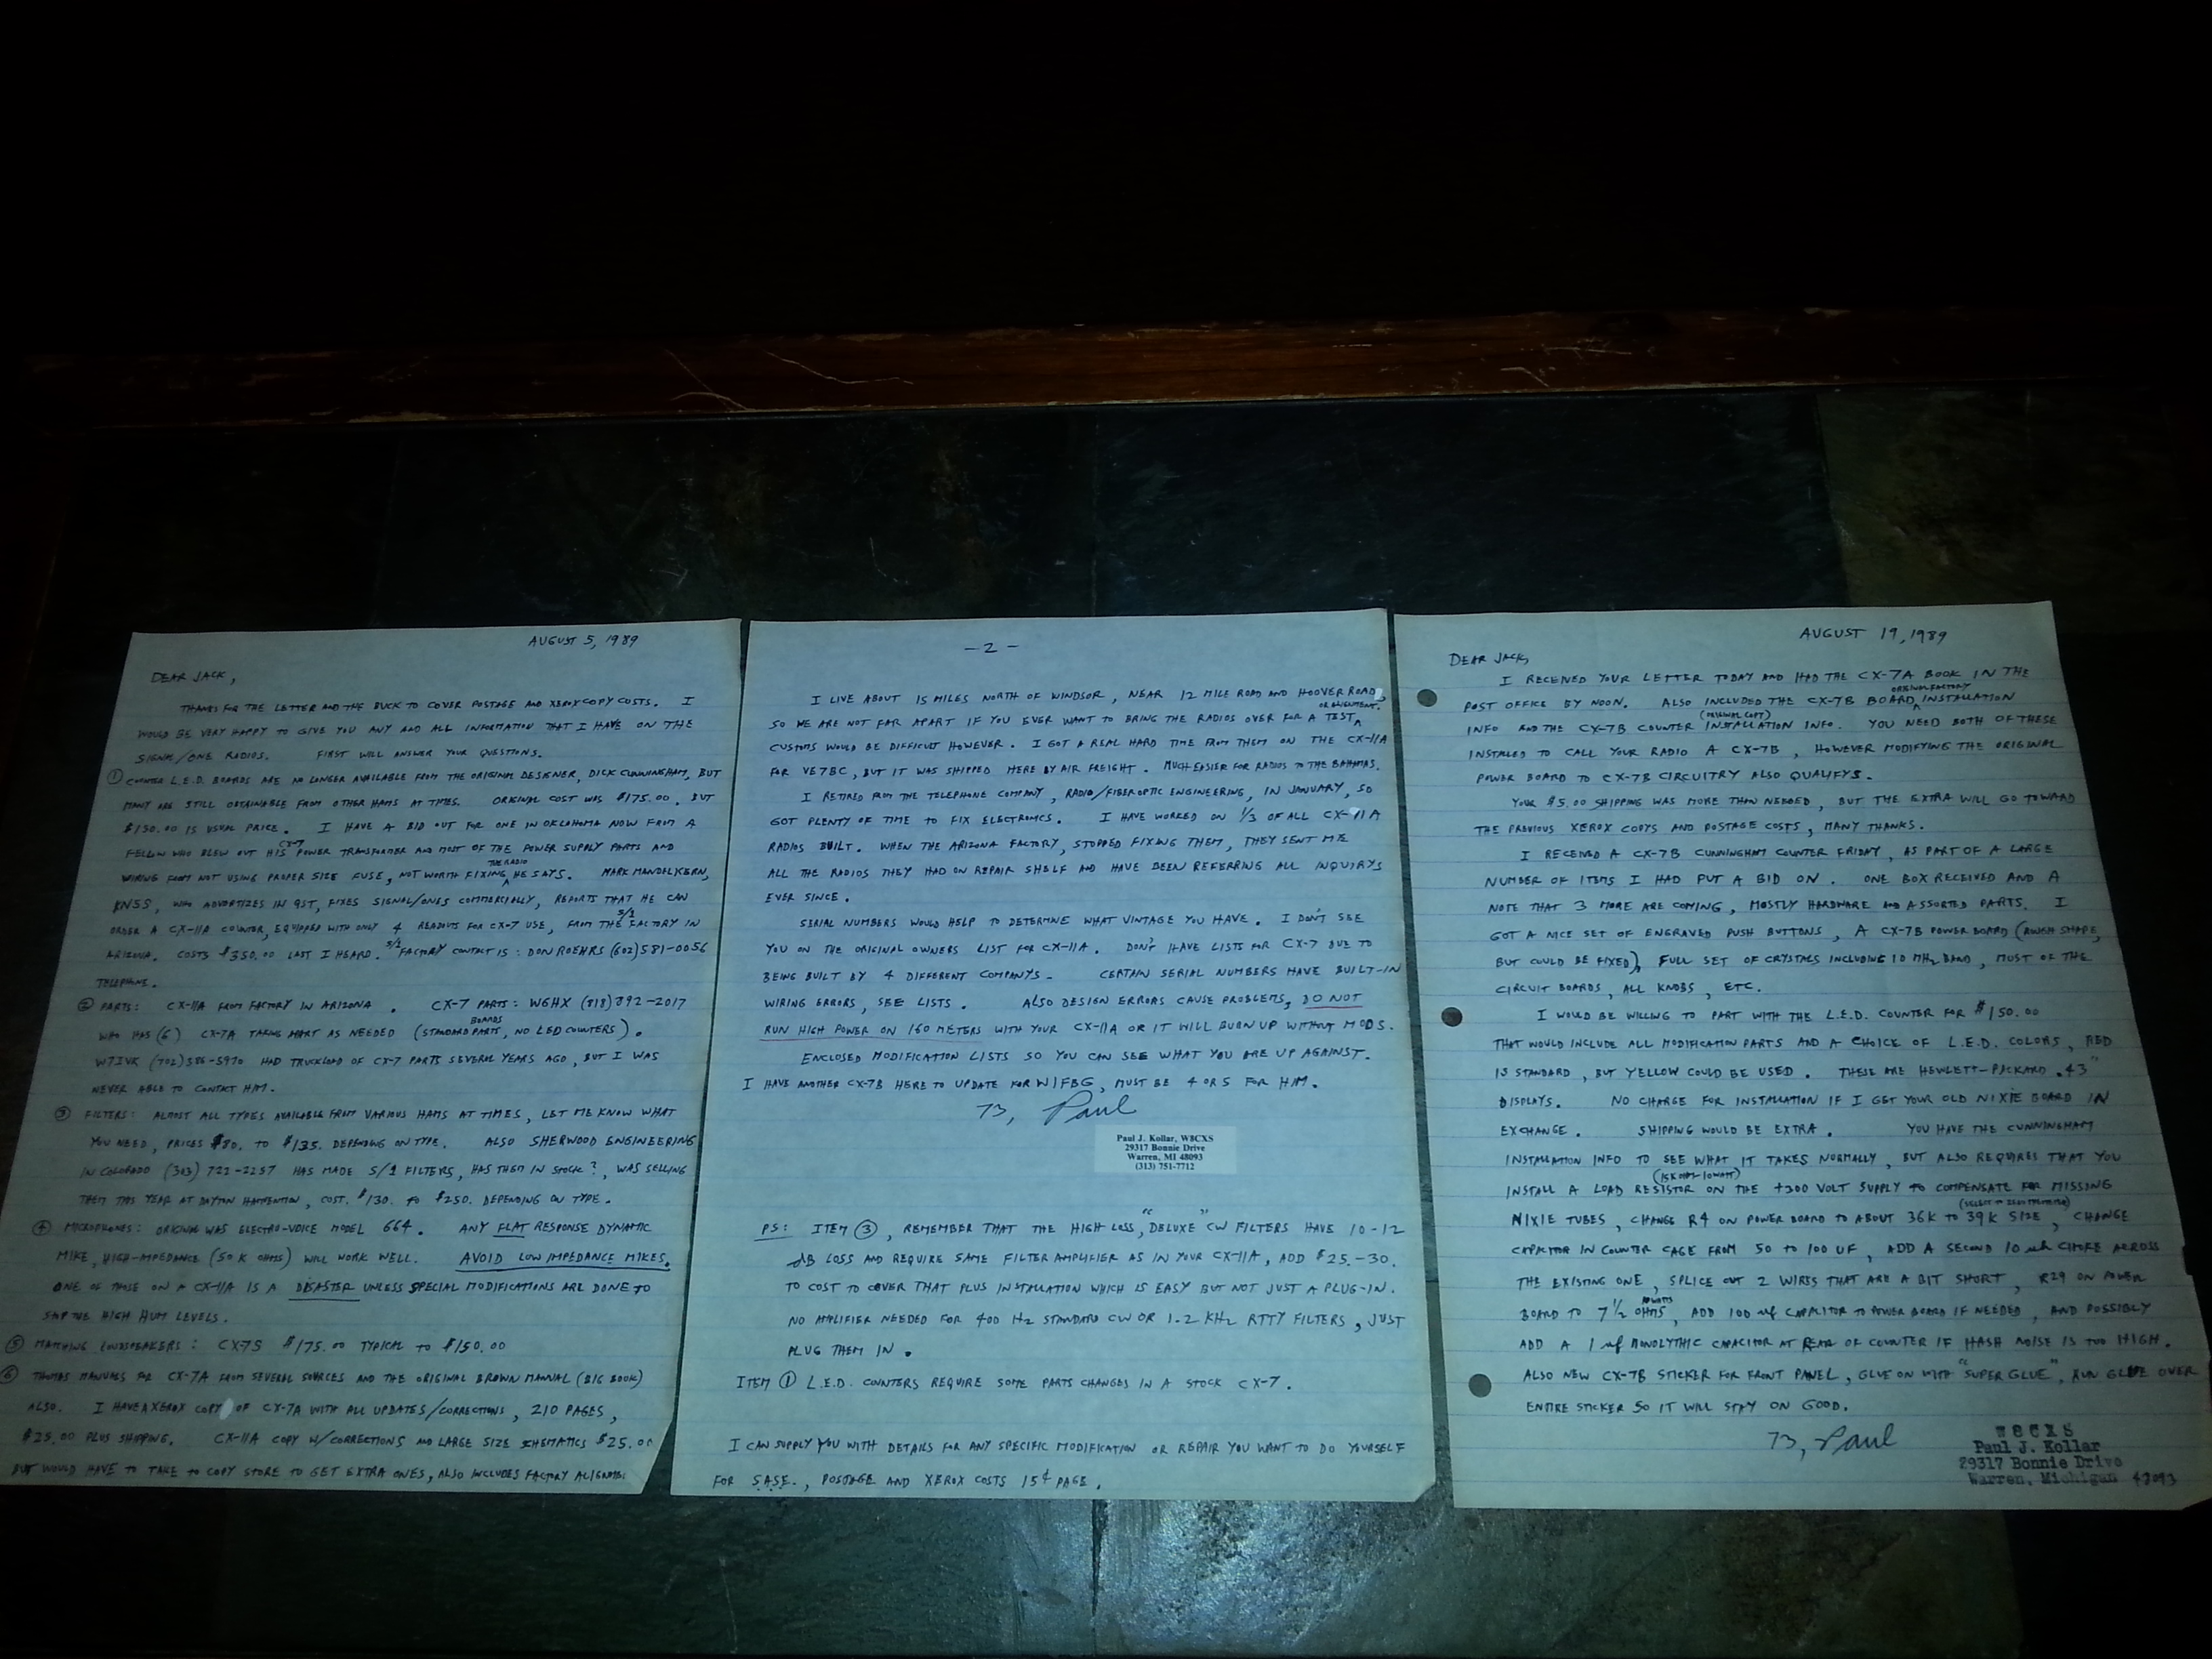 AUGUST 5, 1989
DEAR JACK,
THANKS FOR THE LETTER AND THE BUCK TO COVER POSTAGE AND XEROX COPY COSTS. I
WOULD BE VERY HAPPY TO GIVE YOU ANY AND ALL INFORMATION THAT I HAVE ON THE
SIGNAL/ONE RADIOS. FIRST WILL ANSWER YOUR QUESTIONS.
① COUNTER L.E.D. BOARDS ARE NO LONGER AVAILABLE FROM THE ORIGINAL DESIGNER, DICK CUNNINGHAM, BUT
MANY ARE STILL OBTAINABLE FROM OTHER HAMS AT TIMES. ORIGINAL COST WAS $175.00, BUT
$150.00 IS USUAL PRICE. I HAVE A BID OUT FOR ONE IN OKLAHOMA NOW FROM A
FELLOW WHO BLEW OUT HIS CX-7 POWER TRANSFORMER AND MOST OF THE POWER SUPPLY PARTS AND
WIRING FROM NOT USING PROPER SIZE FUSE, NOT WORTH FIXING THE RADIO HE SAYS. MARK MANDELKERN,
KN5S, WHO ADVERTIZES IN QST, FIXES SIGNAL/ONES COMMERCIALLY, REPORTS THAT HE CAN
ORDER A CX-11A COUNTER, EQUIPPED WITH ONLY 4 READOUTS FOR CX-7 USE, FROM THE S/1 FACTORY IN
ARIZONA. COSTS $350.00 LAST I HEARD. S/1 FACTORY CONTACT IS: DON ROEHRS (602) 581-0056
TELEPHONE.
② PARTS: CX-11A FROM FACTORY IN ARIZONA. CX-7 PARTS: W6HX (818) 892-2017
WHO HAS (6) CX-7A TAKEN APART AS NEEDED (STANDARD PARTS, BOARDS NO LED COUNTERS).
W7IVK (702) 586-5970 HAD TRUCKLOAD OF CX-7 PARTS SEVERAL YEARS AGO, BUT I WAS
NEVER ABLE TO CONTACT HIM.
③ FILTERS: ALMOST ALL TYPES AVAILABLE FROM VARIOUS HAMS AT TIMES, LET ME KNOW WHAT
YOU NEED, PRICES $80. TO $135. DEPENDING ON TYPE. ALSO SHERWOOD ENGINEERING
IN COLORADO (303) 722-2257 HAS MADE S/1 FILTERS, HAS THEM IN STOCK?, WAS SELLING
THEM THIS YEAR AT DAYTON HAMVENTION, COST. $130. TO $250. DEPENDING ON TYPE.
④ MICROPHONES: ORIGINAL WAS ELECTRO-VOICE MODEL 664. ANY FLAT RESPONSE DYNAMIC
MIKE, HIGH-IMPEDANCE (50 K OHMS) WILL WORK WELL. AVOID LOW IMPEDANCE MIKES.
ONE OF THOSE ON A CX-11A IS A DISASTER UNLESS SPECIAL MODIFICATIONS ARE DONE TO
THE HIGH HUM LEVELS.
⑤ MATCHING LOUDSPEAKERS: CX-7S $175.00 TYPICAL TO $150.00
⑥ THOMAS MANUALS FOR CX-7A FROM SEVERAL SOURCES AND THE ORIGINAL BROWN MANUAL (BIG BOOK)
ALSO. I HAVE A XEROX COPY OF CX-7A WITH ALL UPDATES/CORRECTIONS, 210 PAGES,
$25.00 PLUS SHIPPING. CX-11A COPY W/CORRECTIONS AND LARGE SIZE SCHEMATICS $25.00
BUT WOULD HAVE TO TAKE TO COPY STORE TO GET EXTRA ONES, ALSO INCLUDES FACTORY
- 2 -
I LIVE ABOUT 15 MILES NORTH OF WINDSOR, NEAR 12 MILE ROAD AND HOOVER ROAD,
SO WE ARE NOT FAR APART IF YOU EVER WANT TO BRING THE RADIOS OVER FOR A TEST OR ALIGNMENT.
CUSTOMS WOULD BE DIFFICULT HOWEVER. I GOT A REAL HARD TIME FROM THEM ON THE CX-11A
FOR VE7BC, BUT IT WAS SHIPPED HERE BY AIR FREIGHT. MUCH EASIER FOR RADIOS TO THE BAHAMAS.
I RETIRED FROM THE TELEPHONE COMPANY, RADIO/FIBER OPTIC ENGINEERING, IN JANUARY, SO
GOT PLENTY OF TIME TO FIX ELECTRONICS. I HAVE WORKED ON 1/3 OF ALL CX-11A
RADIOS BUILT. WHEN THE ARIZONA FACTORY, STOPPED FIXING THEM, THEY SENT ME
ALL THE RADIOS THEY HAD ON REPAIR SHELF AND HAVE BEEN REFERRING ALL INQUIRYS
EVER SINCE.
SERIAL NUMBERS WOULD HELP TO DETERMINE WHAT VINTAGE YOU HAVE. I DON'T SEE
YOU ON THE ORIGINAL OWNERS LIST FOR CX-11A. DON'T HAVE LISTS FOR CX-7 DUE TO
BEING BUILT BY 4 DIFFERENT COMPANYS. CERTAIN SERIAL NUMBERS HAVE BUILT-IN
WIRING ERRORS, SEE LISTS. ALSO DESIGN ERRORS CAUSE PROBLEMS, DO NOT
RUN HIGH POWER ON 160 METERS WITH YOUR CX-11A OR IT WILL BURN UP WITHOUT MODS.
ENCLOSED MODIFICATION LISTS SO YOU CAN SEE WHAT YOU ARE UP AGAINST.
I HAVE ANOTHER CX-7B HERE TO UPDATE FOR W1FBG, MUST BE 4 OR 5 FOR HIM.
73, Paul
Paul J. Kollar, W8CXS
29317 Bonnie Drive
Warren, MI 48093
(313) 751-7712
PS: ITEM ③, REMEMBER THAT THE HIGH LOSS, "DELUXE" CW FILTERS HAVE 10-12
dB LOSS AND REQUIRE SAME FILTER AMPLIFIER AS IN YOUR CX-11A, ADD $25.-30.
TO COST TO COVER THAT PLUS INSTALLATION WHICH IS EASY BUT NOT JUST A PLUG-IN.
NO AMPLIFIER NEEDED FOR 400 Hz STANDARD CW OR 1.2 KHz RTTY FILTERS, JUST
PLUG THEM IN.
ITEM ① L.E.D. COUNTERS REQUIRE SOME PARTS CHANGES IN A STOCK CX-7.
I CAN SUPPLY YOU WITH DETAILS FOR ANY SPECIFIC MODIFICATION OR REPAIR YOU WANT TO DO YOURSELF
FOR S.A.S.E., POSTAGE AND XEROX COSTS 15¢ PAGE.
AUGUST 19, 1989
DEAR JACK,
I RECEIVED YOUR LETTER TODAY AND HAD THE CX-7A BOOK IN THE
POST OFFICE BY NOON. ALSO INCLUDED THE CX-7B BOARD ORIGINAL FACTORY INSTALLATION
INFO AND THE CX-7B COUNTER (ORIGINAL COPY) INSTALLATION INFO. YOU NEED BOTH OF THESE
INSTALLED TO CALL YOUR RADIO A CX-7B, HOWEVER MODIFYING THE ORIGINAL
POWER BOARD TO CX-7B CIRCUITRY ALSO QUALIFYS.
YOUR $5.00 SHIPPING WAS MORE THAN NEEDED, BUT THE EXTRA WILL GO TOWARD
THE PREVIOUS XEROX COPYS AND POSTAGE COSTS, MANY THANKS.
I RECEIVED A CX-7B CUNNINGHAM COUNTER FRIDAY, AS PART OF A LARGE
NUMBER OF ITEMS I HAD PUT A BID ON. ONE BOX RECEIVED AND A
NOTE THAT 3 MORE ARE COMING, MOSTLY HARDWARE AND ASSORTED PARTS. I
GOT A NICE SET OF ENGRAVED PUSH BUTTONS, A CX-7B POWER BOARD (ROUGH SHAPE,
BUT COULD BE FIXED), FULL SET OF CRYSTALS INCLUDING 10 MHz BAND, MOST OF THE
CIRCUIT BOARDS, ALL KNOBS, ETC.
I WOULD BE WILLING TO PART WITH THE L.E.D. COUNTER FOR $150.00
THAT WOULD INCLUDE ALL MODIFICATION PARTS AND A CHOICE OF L.E.D. COLORS, RED
IS STANDARD, BUT YELLOW COULD BE USED. THESE ARE HEWLETT-PACKARD .43"
DISPLAYS. NO CHARGE FOR INSTALLATION IF I GET YOUR OLD NIXIE BOARD IN
EXCHANGE. SHIPPING WOULD BE EXTRA. YOU HAVE THE CUNNINGHAM
INSTALLATION INFO TO SEE WHAT IT TAKES NORMALLY, BUT ALSO REQUIRES THAT YOU
INSTALL A LOAD RESISTOR (15K OHM 10WATT) ON THE +300 VOLT SUPPLY TO COMPENSATE FOR MISSING
NIXIE TUBES, CHANGE R4 ON POWER BOARD TO ABOUT 36K TO 39K SIZE, CHANGE
CAPACITOR IN COUNTER CAGE FROM 50 TO 100 UF, ADD A SECOND 10 uh CHOKE ACROSS
THE EXISTING ONE, SPLICE OUT 2 WIRES THAT ARE A BIT SHORT, R29 ON POWER
BOARD TO 7 1/2 OHMS, ADD 100 uf CAPACITOR TO POWER BOARD IF NEEDED, AND POSSIBLY
ADD A 1 uf MONOLYTHIC CAPACITOR AT REAR OF COUNTER IF HASH NOISE IS TOO HIGH.
ALSO NEW CX-7B STICKER FOR FRONT PANEL, GLUE ON WITH "SUPER GLUE", RUN GLUE OVER
ENTIRE STICKER SO IT WILL STAY ON GOOD.
73, Paul
W8CXS
Paul J. Kollar
29317 Bonnie Drive
Warren, Michigan 48093